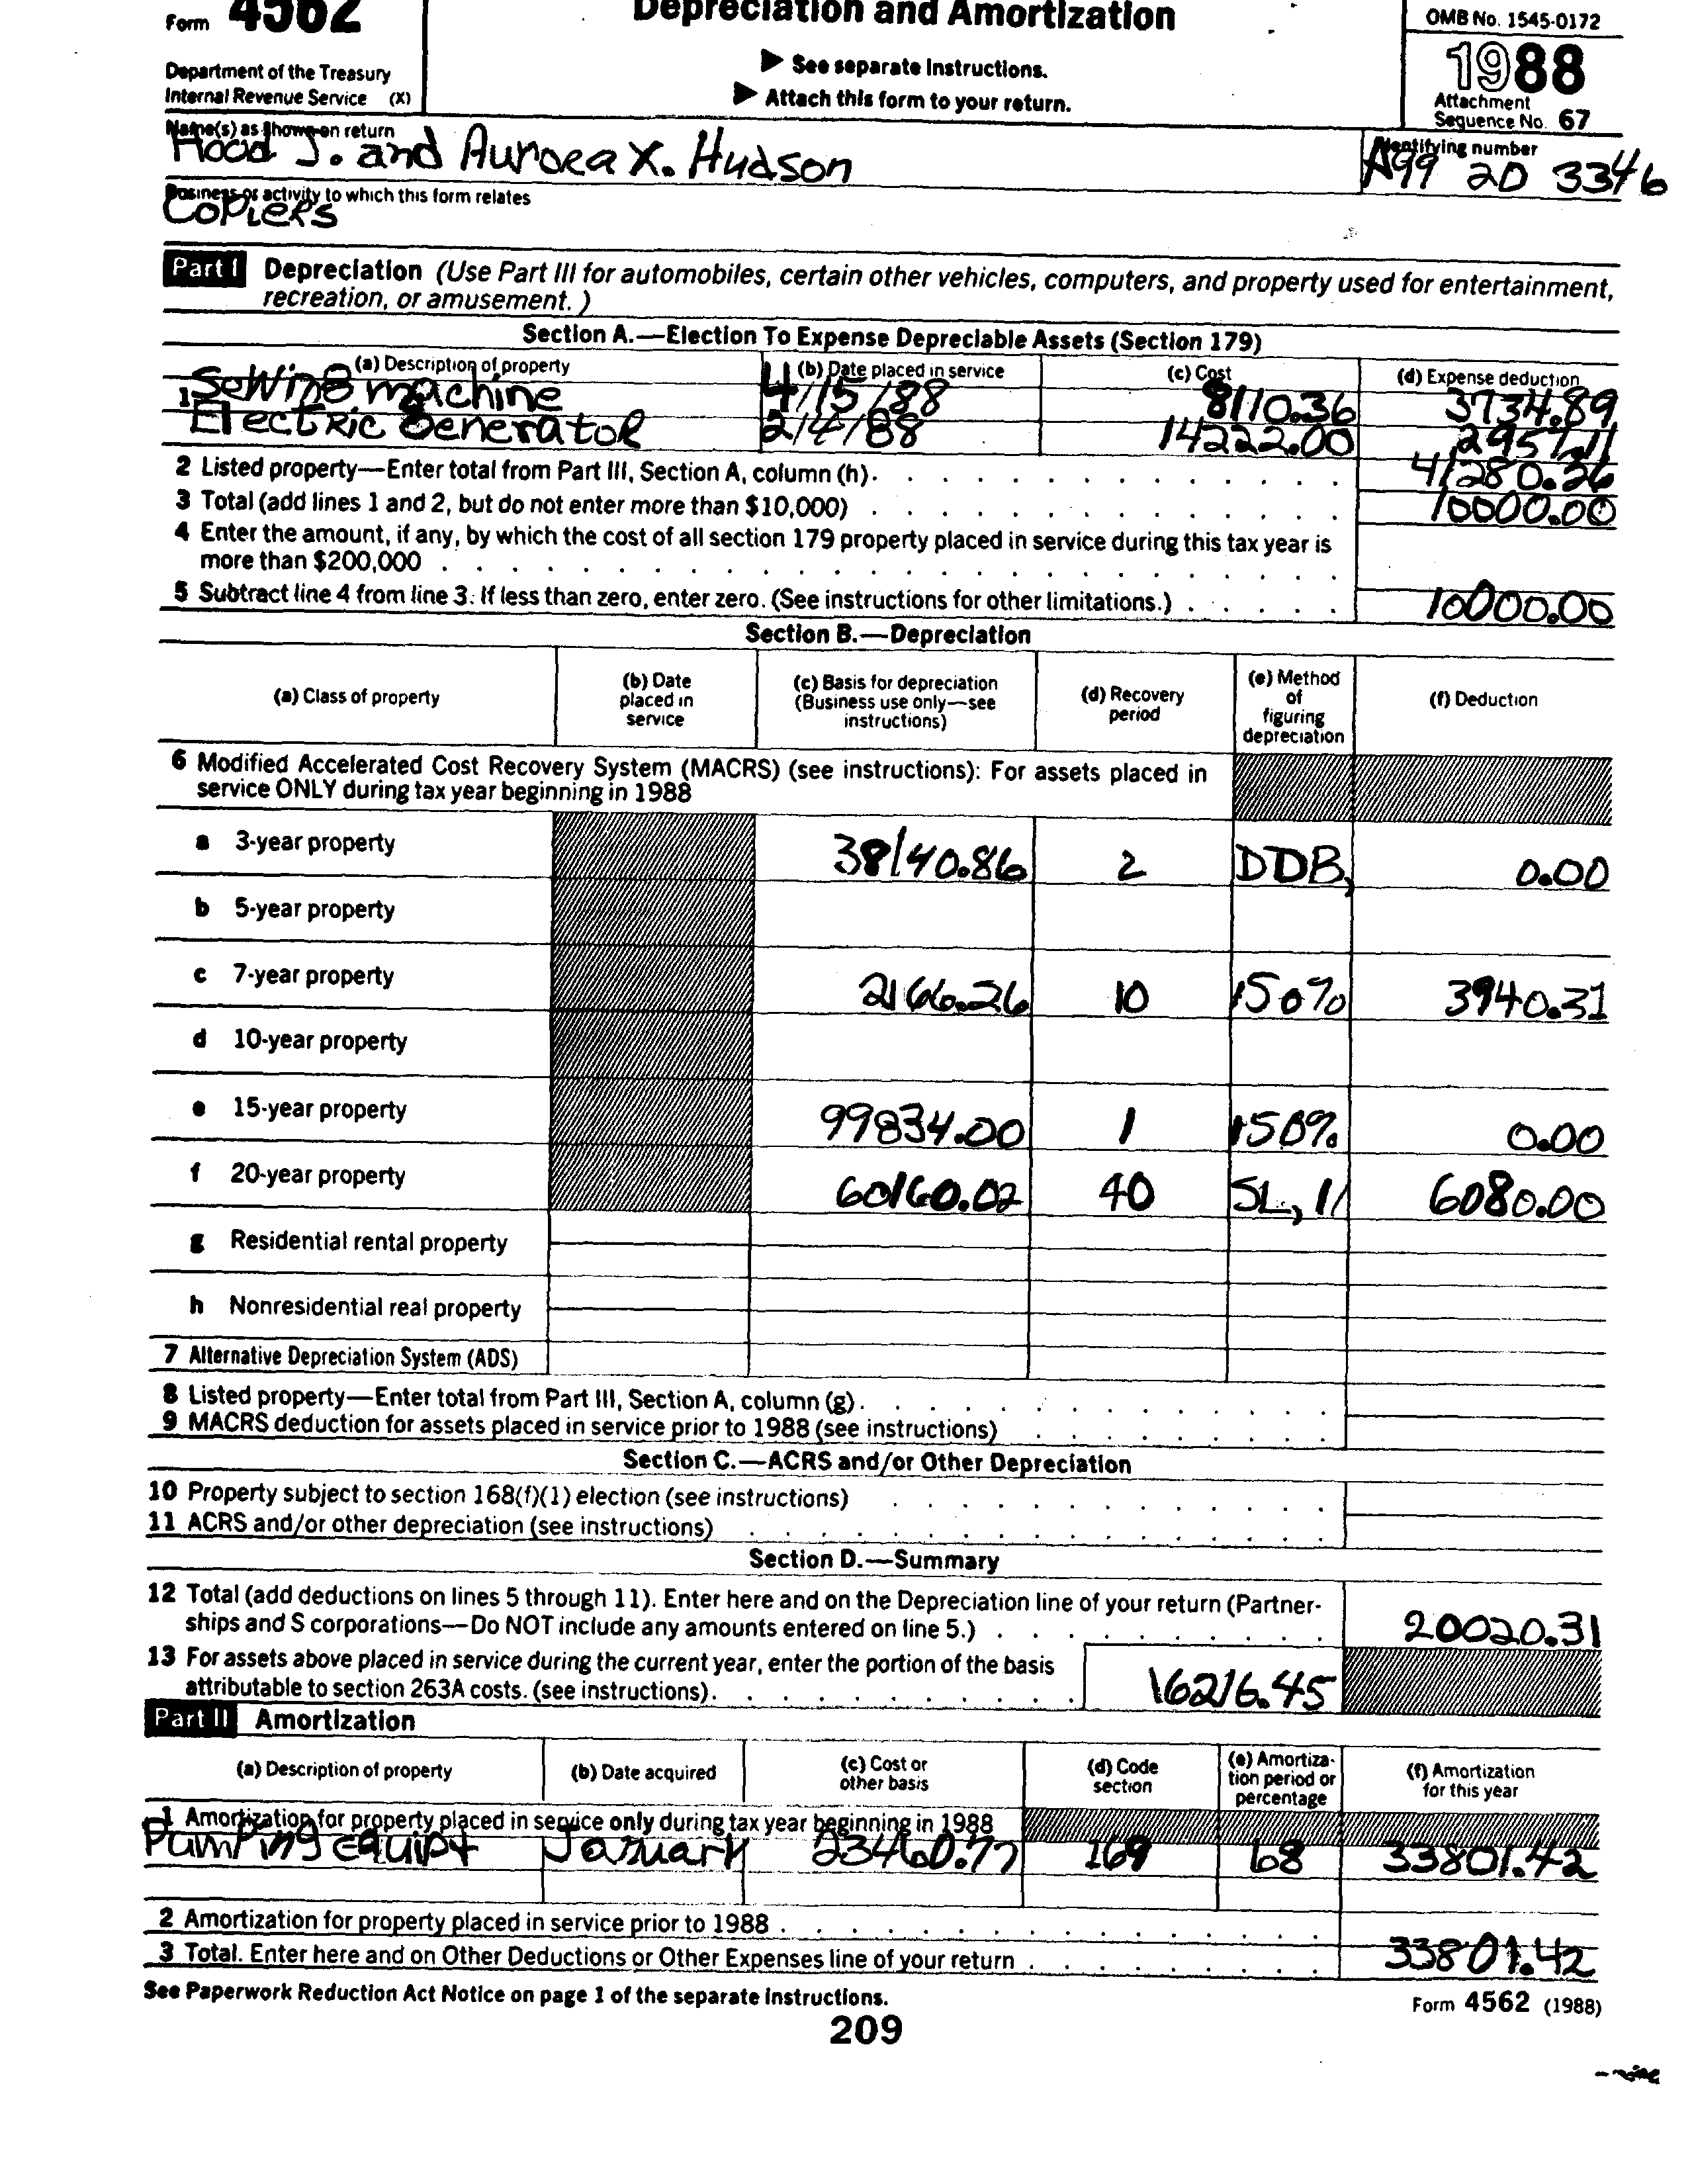 Form 4562
Depreciation and Amortization
OMB No. 1545-0172
Department of the Treasury
Internal Revenue Service (X)
▶ See separate Instructions.
▶ Attach this form to your return.
1988
Attachment
Sequence No. 67
Name(s) as shown on return
Hood J. and Aurora X. Hudson
Identifying number
A99 20 3346
Business or activity to which this form relates
Copiers
Part I Depreciation (Use Part III for automobiles, certain other vehicles, computers, and property used for entertainment,
recreation, or amusement.)
Section A.—Election To Expense Depreciable Assets (Section 179)
(a) Description of property (b) Date placed in service (c) Cost (d) Expense deduction
1 Sewing machine 4/15/88 8110.36 3734.89
Electric Generator 2/4/88 14222.00 2957.11
2 Listed property—Enter total from Part III, Section A, column (h). 41280.26
3 Total (add lines 1 and 2, but do not enter more than $10,000) 10000.00
4 Enter the amount, if any, by which the cost of all section 179 property placed in service during this tax year is
more than $200,000
5 Subtract line 4 from line 3. If less than zero, enter zero. (See instructions for other limitations.) 10000.00
Section B.—Depreciation
(a) Class of property (b) Date placed in service (c) Basis for depreciation (Business use only—see instructions) (d) Recovery period (e) Method of figuring depreciation (f) Deduction
6 Modified Accelerated Cost Recovery System (MACRS) (see instructions): For assets placed in
service ONLY during tax year beginning in 1988
a 3-year property 38140.86 2 DDB, 0.00
b 5-year property
c 7-year property 2166.26 10 150% 3940.31
d 10-year property
e 15-year property 99834.00 1 150% 0.00
f 20-year property 60160.02 40 SL, 1/ 6080.00
g Residential rental property
h Nonresidential real property
7 Alternative Depreciation System (ADS)
8 Listed property—Enter total from Part III, Section A, column (g).
9 MACRS deduction for assets placed in service prior to 1988 (see instructions)
Section C.—ACRS and/or Other Depreciation
10 Property subject to section 168(f)(1) election (see instructions)
11 ACRS and/or other depreciation (see instructions)
Section D.—Summary
12 Total (add deductions on lines 5 through 11). Enter here and on the Depreciation line of your return (Partner-
ships and S corporations—Do NOT include any amounts entered on line 5.) 20020.31
13 For assets above placed in service during the current year, enter the portion of the basis
attributable to section 263A costs. (see instructions). 16216.45
Part II Amortization
(a) Description of property (b) Date acquired (c) Cost or other basis (d) Code section (e) Amortiza-tion period or percentage (f) Amortization for this year
1 Amortization for property placed in service only during tax year beginning in 1988
Pumping equipt January 23460.77 169 68 33801.42
2 Amortization for property placed in service prior to 1988
3 Total. Enter here and on Other Deductions or Other Expenses line of your return 33801.42
See Paperwork Reduction Act Notice on page 1 of the separate Instructions.
Form 4562 (1988)
209